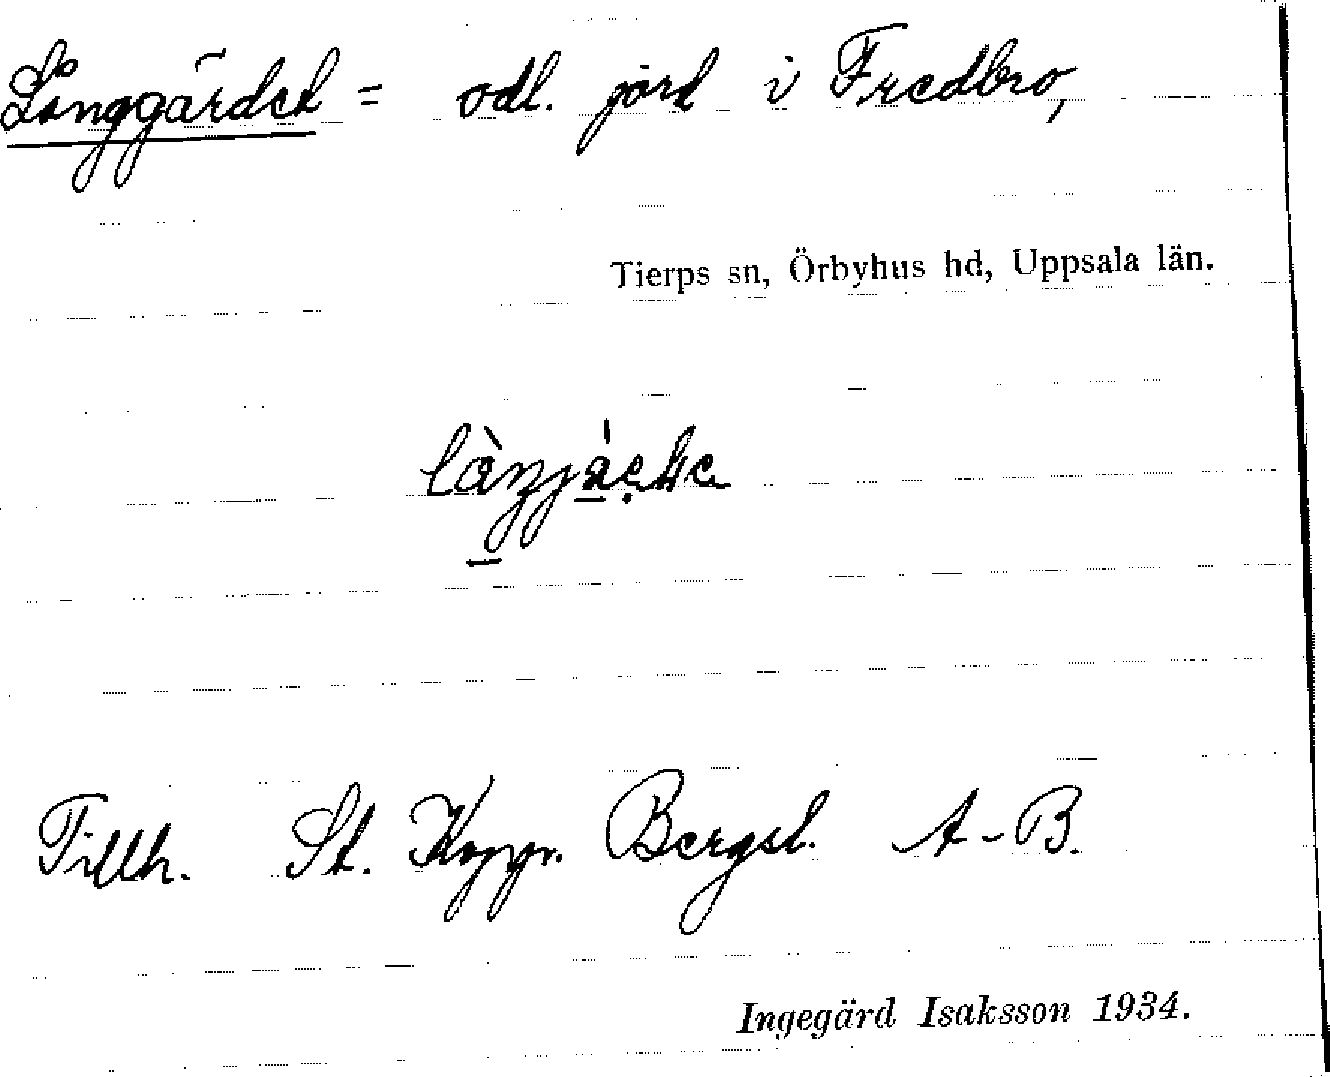 Långgärdet = odl. jord i Fredbro,
Tierps sn, Örbyhus hd, Uppsala län.
Tillh. St. Koppr. Bergsl. A-B.
Ingegärd Isaksson 1934.